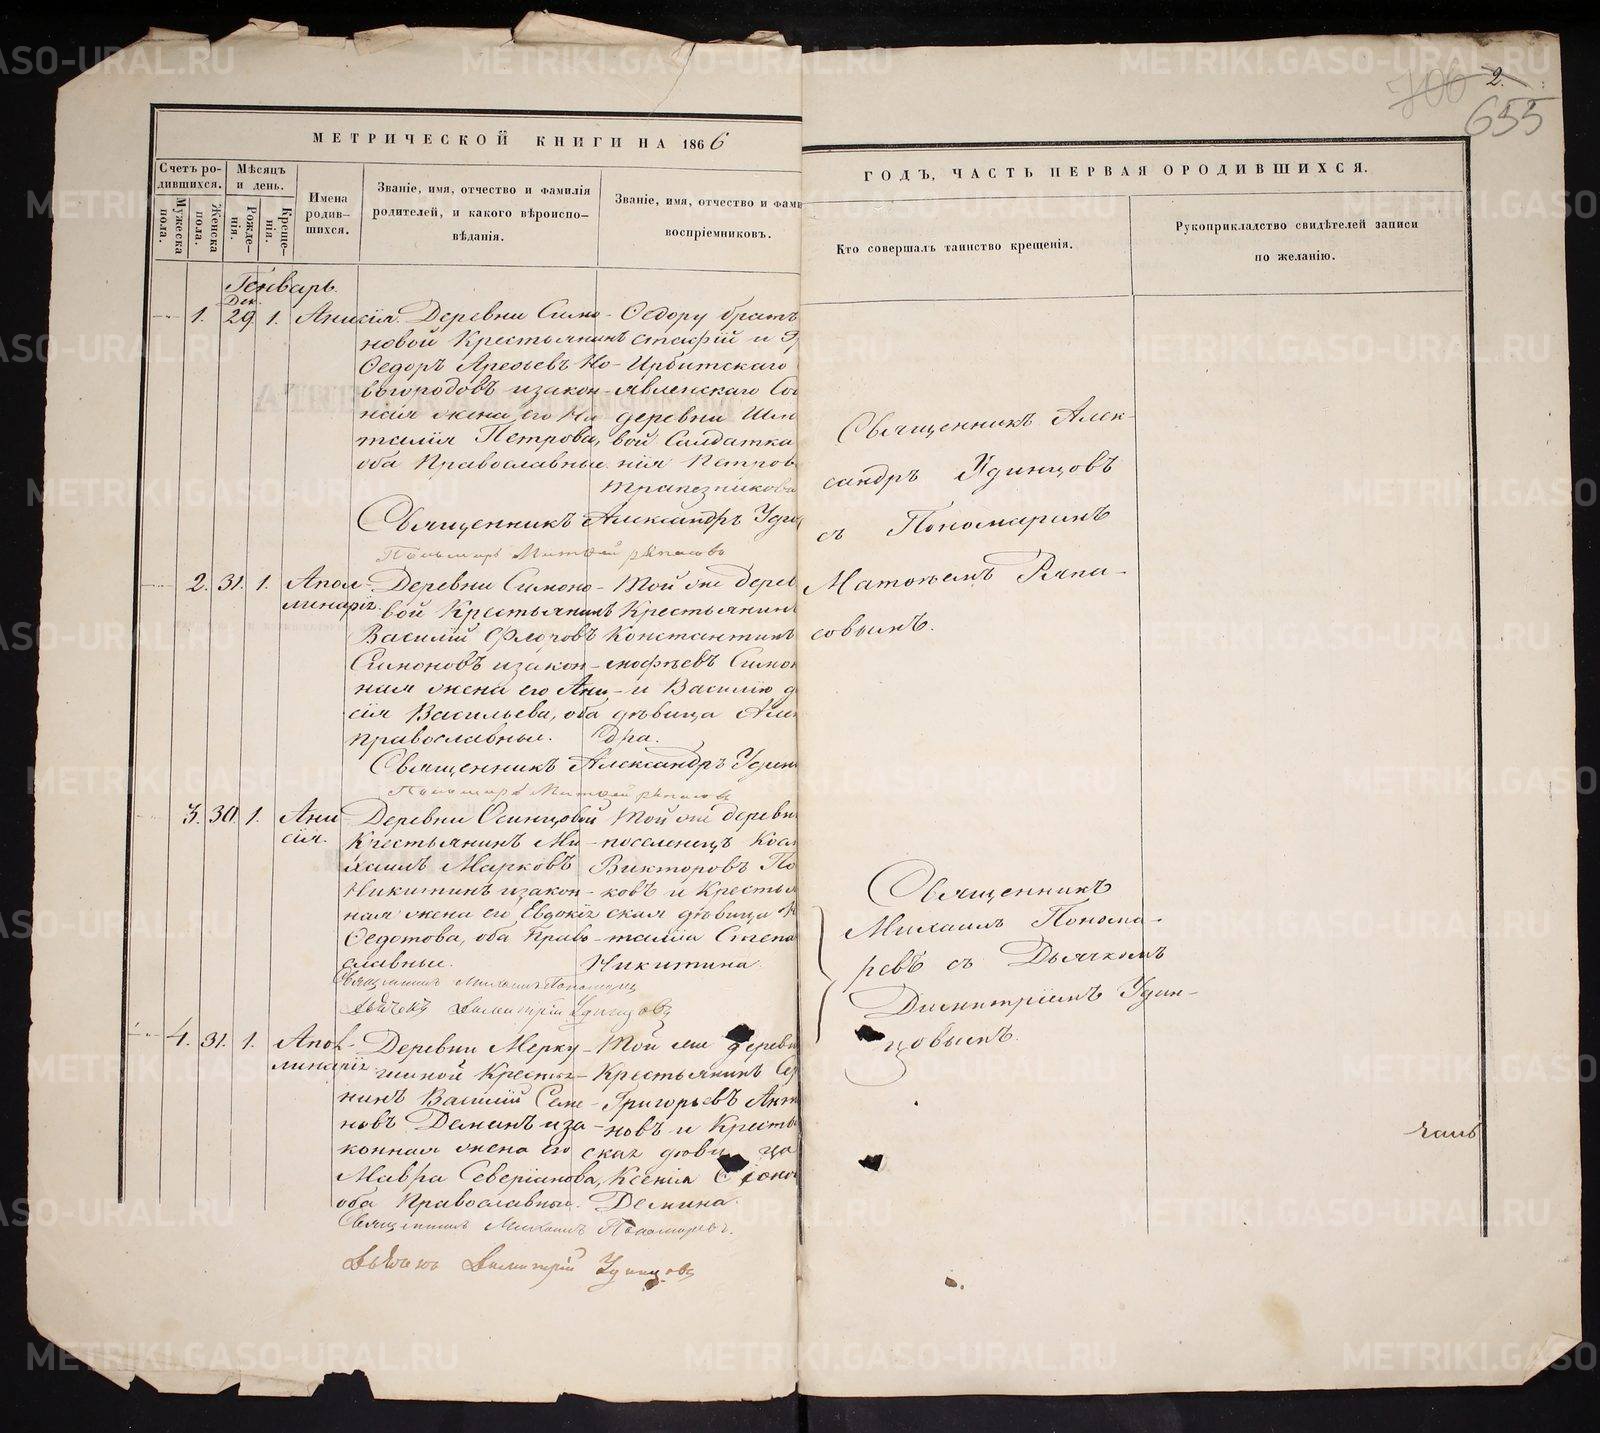 METRIKI.GASO-URAL.RU
2.
700
655
МЕТРИЧЕСКОЙ КНИГИ НА 1866
ГОДЪ, ЧАСТЬ ПЕРВАЯ О РОДИВШИХСЯ.
Счетъ ро-
дившихся.
Мужеска пола.
Женска пола.
Мѣсяцъ
и день.
Рожде-
нія.
Креще-
нія.
Имена
родив-
шихся.
Званіе, имя, отчество и фамилія
родителей, и какого вѣроиспо-
вѣданія.
Званіе, имя, отчество и фами
воспріемниковъ.
Кто совершалъ таинство крещенія.
Рукоприкладство свидѣтелей записи
по желанію.
Генварь
Дек.
1. 29. 1. Анисія. Деревни Симо-
новой Крестьянинъ
Ѳедоръ Арефьевъ Но-
вогородовъ и закон-
ная жена его На
талія Петрова,
оба Православные.
Ѳедору братъ
Ирбитскаго
явленскаго
деревни
вой Салдатка
нія Петров
Трапезникова
Священникъ Александръ Удин
Пономарь Матѳей Ряпасовъ
Священникъ Алек-
сандръ Удинцовъ
съ Пономаремъ
Матѳеемъ Ряпа-
совымъ.
2. 31. 1. Апол-
линарія.
Деревни Симоно-
вой Крестьянинъ
Василій Фроловъ
Симоновъ и закон-
ная жена его Ани-
сія Васильева, оба
православные.
Той же дерев
Крестьянинъ
Константинъ
мофѣевъ Симон
и Василію
дѣвица Алек
дра.
Священникъ Александръ Удин
Пономарь Матѳей Ряпасовъ
3. 30. 1. Ани
сія.
Деревни Осинцовой
Крестьянинъ Ми-
хаилъ Марковъ
Никитинъ и закон-
ная жена его Евдокія
Ѳедотова, оба Право-
славные.
Той же деревн
поселенецъ Косм
Викторовъ По
ковъ и Крестья
ская дѣвица
талія Степа
Никитина.
Священникъ Михаилъ Пономаревъ
Дьячекъ Димитрій Удинцовъ
Священникъ
Михаилъ Понома-
ревъ съ Дьячкомъ
Димитріемъ Удин-
цовымъ.
4. 31. 1. Апол-
линарія
Деревни Мерку-
шиной Крестья-
нинъ Василій Семе-
новъ Деминъ и за-
конная жена его
Мавра Северіанова,
оба Православные.
Той же деревн
Крестьянинъ
Григорьевъ Ант
новъ и Кресть
ская дѣвица
Ксенія
Демина.
Священникъ Михаилъ Пономаревъ.
Дьячекъ Димитрій Удинцовъ